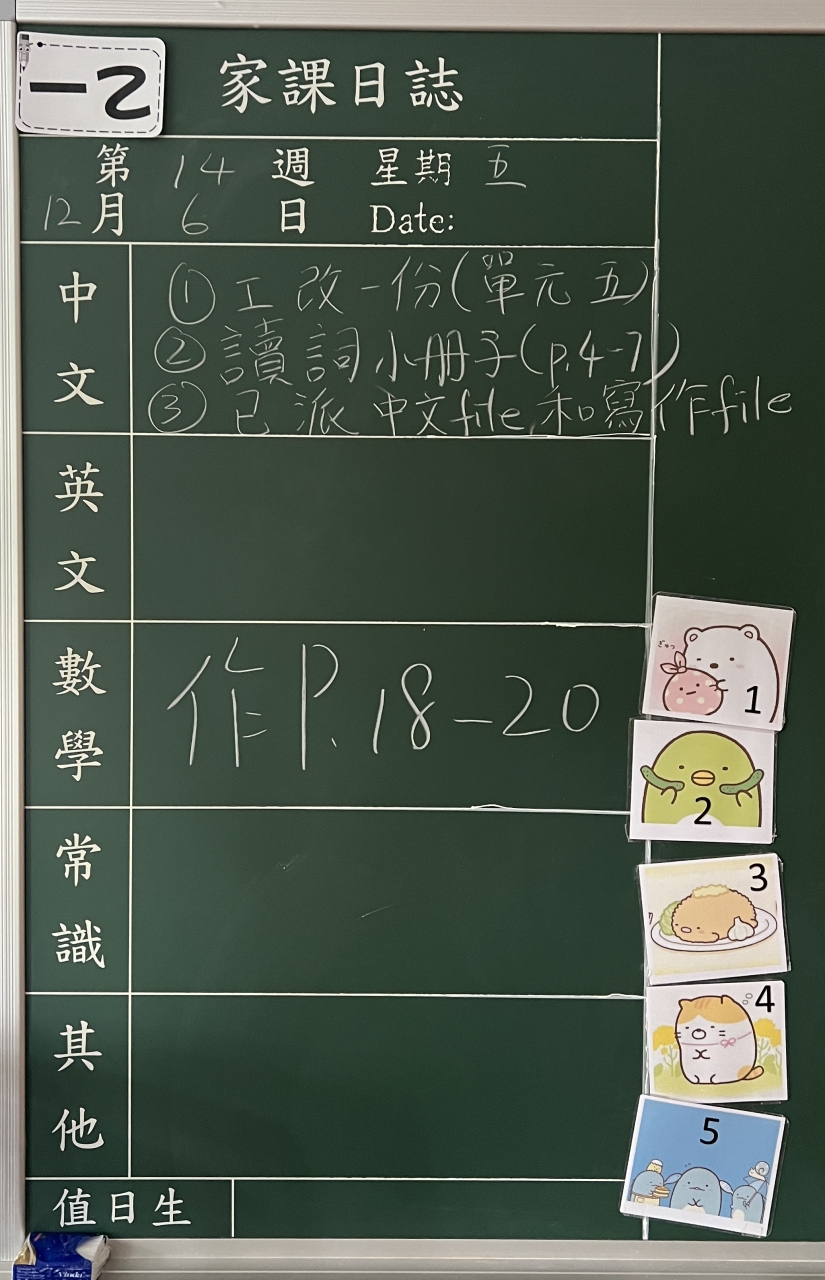 一乙
家課日誌
第 14 週 星期 五
12月 6 日 Date:
中文
① 工改一份(單元五)
② 讀詞小册子(p.4-7)
③ 已派中文file和寫作file
英文
數學
作P.18-20
常識
其他
值日生
1
2
3
4
5
Vinda